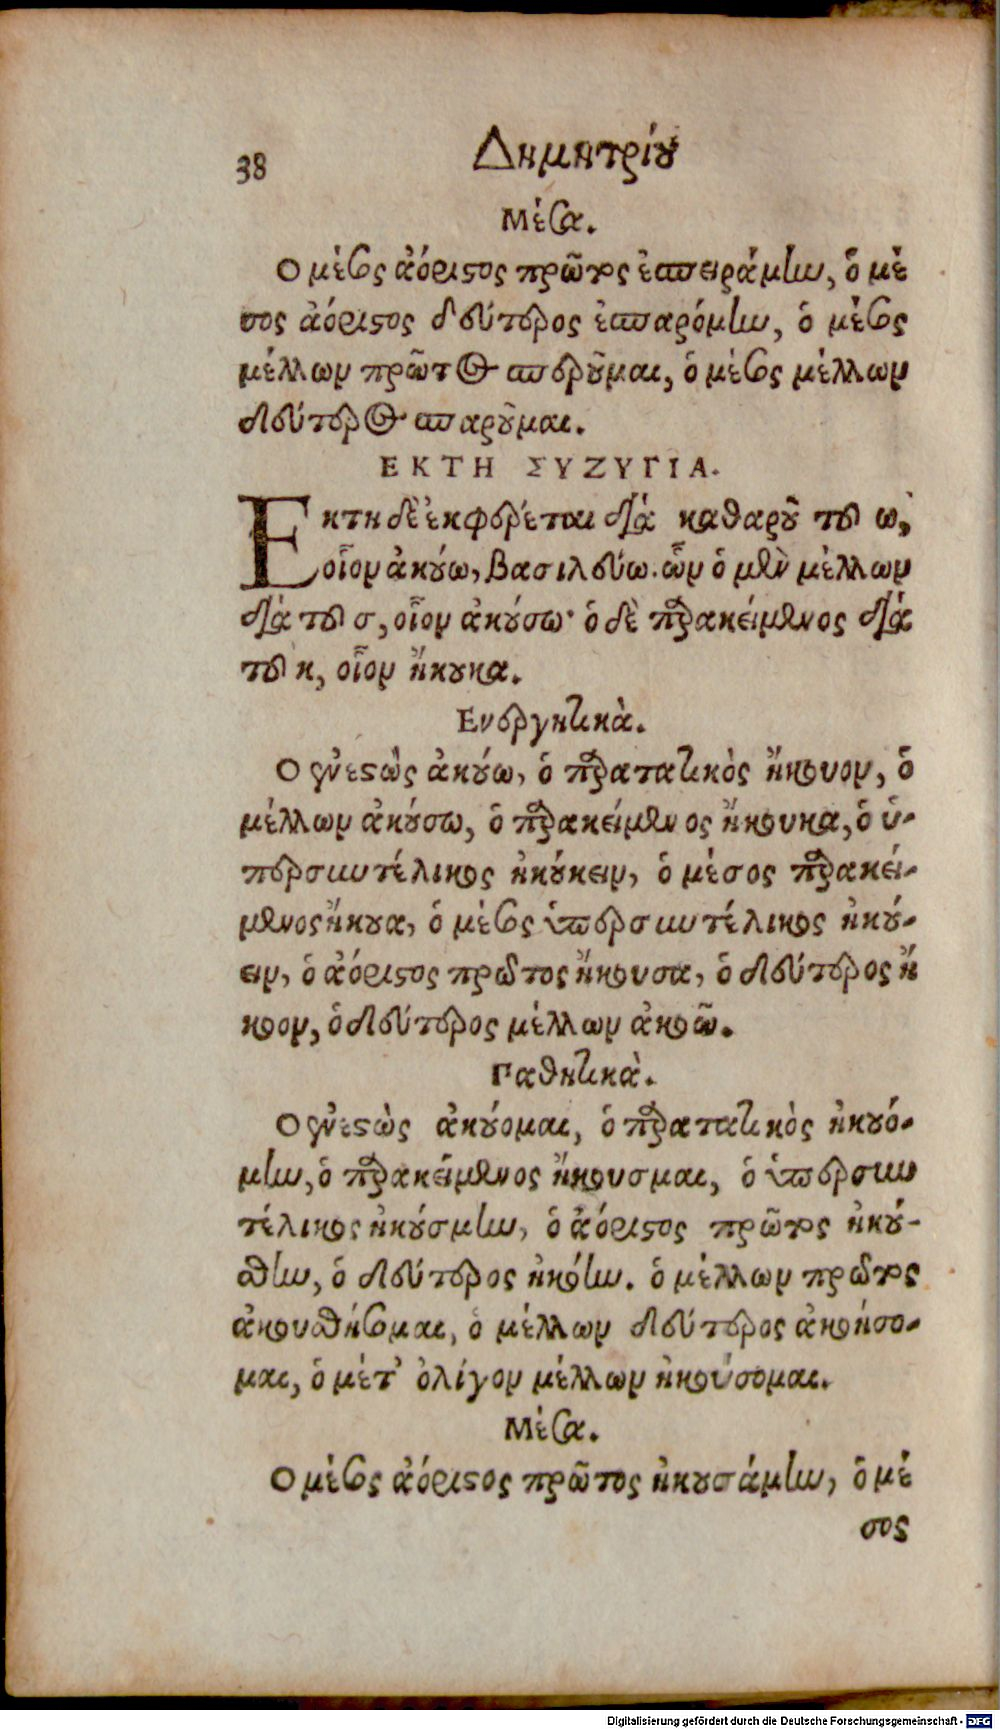 38
Δημητρίου
Μέσα.
Ο μέσος ἀόριστος πρῶτος ἐσπειράμην, ὁ μέ
σος ἀόριστος δεύτερος ἐσπαρόμην, ὁ μέσος
μέλλων πρῶτος σπεροῦμαι, ὁ μέσος μέλλων
δεύτερος σπαροῦμαι.
ΕΚΤΗ ΣΥΖΥΓΙΑ.
Εκτη δὲ ἐκφέρεται διὰ καθαροῦ τοῦ ω,
οἷον ἀκούω, βασιλεύω. ὧν ὁ μὲν μέλλων
διὰ τοῦ σ, οἷον ἀκούσω· ὁ δὲ παρακείμενος διὰ
τοῦ κ, οἷον ἤκουκα.
Ενεργητικὰ.
Ο ἐνεστὼς ἀκούω, ὁ παρατατικὸς ἤκουον, ὁ
μέλλων ἀκούσω, ὁ παρακείμενος ἤκουκα, ὁ ὑ-
περσυντέλικος ἠκούκειν, ὁ μέσος παρακεί-
μενος ἤκουα, ὁ μέσος ὑπερσυντέλικος ἠκού-
ειν, ὁ ἀόριστος πρῶτος ἤκουσα, ὁ δεύτερος ἤ
κοον, ὁ δεύτερος μέλλων ἀκοῶ.
Παθητικὰ.
Ο ἐνεστὼς ἀκούομαι, ὁ παρατατικὸς ἠκουό-
μην, ὁ παρακείμενος ἤκουσμαι, ὁ ὑπερσυν
τέλικος ἠκούσμην, ὁ ἀόριστος πρῶτος ἠκού-
σθην, ὁ δεύτερος ἠκόην. ὁ μέλλων πρῶτος
ἀκουσθήσομαι, ὁ μέλλων δεύτερος ἀκοήσο-
μαι, ὁ μέτ' ὀλίγον μέλλων ἠκούσομαι.
Μέσα.
Ο μέσος ἀόριστος πρῶτος ἠκουσάμην, ὁ μέ
σος
Digitalisierung gefördert durch die Deutsche Forschungsgemeinschaft - DFG